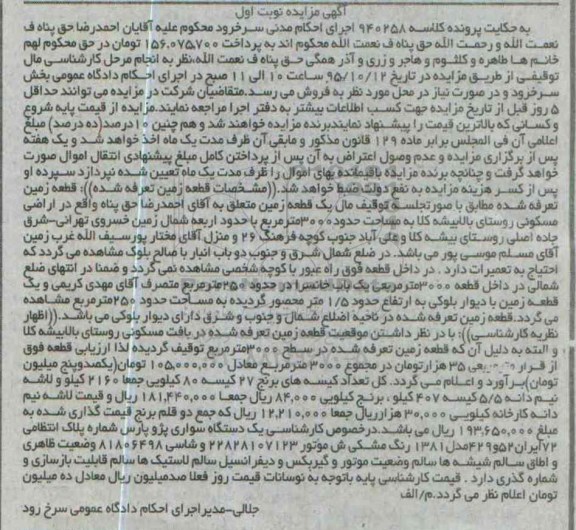 آگهی مزایده نوبت اول
به حکایت پرونده کلاسه ۹۴۰۲۵۸ اجرای احکام مدنی سرخرود محکوم علیه آقایان احمدرضا حق پناه ف
نعمت الله و رحمت الله حق پناه ف نعمت الله محکوم اند به پرداخت ۱۵۶,۰۷۵,۷۰۰ تومان در حق محکوم لهم
خانم ها طاهره و کلثوم و هاجر و زری و آذر همگی حق پناه ف نعمت الله،نظر به انجام مرحل کارشناسی مال
توقیفی از طریق مزایده در تاریخ ۹۵/۱۰/۱۲ ساعت ۱۰ الی ۱۱ صبح در اجرای احکام دادگاه عمومی بخش
سرخرود و در صورت نیاز در محل مورد نظر به فروش می رسد.متقاضیان شرکت در مزایده می توانند حداقل
۵ روز قبل از تاریخ مزایده جهت کسب اطلاعات بیشتر به دفتر اجرا مراجعه نمایند.مزایده از قیمت پایه شروع
و کسانی که بالاترین قیمت را پیشنهاد نمایندبرنده مزایده خواهند شد و هم چنین ۱۰درصد(ده درصد) مبلغ
اعلامی آن فی المجلس برابر ماده ۱۲۹ قانون مذکور و مابقی آن ظرف مدت یک ماه اخذ خواهد شد و یک هفته
پس از برگزاری مزایده و عدم وصول اعتراض به آن پس از پرداختن کامل مبلغ پیشنهادی انتقال اموال صورت
خواهد گرفت و چنانچه برنده مزایده باقیمانده بهای اموال را ظرف مدت یک ماه تعیین شده نپردازد سپرده او
پس از کسر هزینه مزایده به نفع دولت ضبط خواهد شد.((مشخصات قطعه زمین تعرفه شده)): قطعه زمین
تعرفه شده مطابق با صورتجلسه توقیف مال یک قطعه زمین متعلق به آقای احمدرضا حق پناه واقع در اراضی
مسکونی روستای بالابیشه کلا به مساحت حدود۳۰۰۰مترمربع باحدود اربعه شمال زمین خسروی تهرانی-شرق
جاده اصلی روستای بیشه کلا وعلی آباد جنوب کوچه فرهنگ ۲۶ و منزل آقای مختار پورسیف الله غرب زمین
آقای مسلم موسی پور می باشد. در ضلع شمال شرق و جنوب دو باب انبار با صالح بلوک مشاهده می گردد که
احتیاج به تعمیرات دارد . در داخل قطعه فوق راه عبور یا کوچه شخصی مشاهده نمی گردد و ضمنا در انتهای ضلع
شمالی در داخل قطعه ۳۰۰۰مترمربعی یک باب خانسرا در حدود ۲۵۰مترمربع متصرف آقای مهدی کریمی و یک
قطعه زمین با دیوار بلوکی به ارتفاع حدود ۱/۵ متر محصور گردیده به مساحت حدود ۲۵۰مترمربع مشاهده
می گردد.قطعه زمین تعرفه شده در ناحیه اضلاع شمال و جنوب و شرق دارای دیوار بلوکی می باشد.((اظهار
نظریه کارشناسی)): با در نظر داشتن موقعیت قطعه زمین تعرفه شده در بافت مسکونی روستای بالابیشه کلا
و البته به دلیل آن که قطعه زمین تعرفه شده در سطح ۳۰۰۰مترمربع توقیف گردیده لذا ارزیابی قطعه فوق
از قرار مترمربعی ۳۵ هزارتومان در مجموع ۳۰۰۰ مترمربع معادل ۱۰۵,۰۰۰,۰۰۰ تومان(یکصدوپنج میلیون
تومان)برآورد و اعلام می گردد. کل تعداد کیسه های برنج ۲۷ کیسه ۸۰ کیلویی جمعا ۲۱۶۰ کیلو و لاشه
نیم دانه ۵/۵ کیسه ۴۰۷ کیلو ، برنج کیلویی ۸۴,۰۰۰ ریال جمعا ۱۸۱,۴۴۰,۰۰۰ ریال و قیمت لاشه نیم
دانه کارخانه کیلویی ۳۰,۰۰۰ هزارریال جمعا ۱۲,۲۱۰,۰۰۰ ریال که جمع دو قلم برنج قیمت گذاری شده به
مبلغ ۱۹۳,۶۵۰,۰۰۰ ریال می باشد.درخصوص کارشناسی یک دستگاه سواری پژو پارس شماره پلاک انتظامی
۷۲ایران۵۲و۴۲۹مدل۱۳۸۱ رنگ مشکی ش موتور ۲۲۸۲۸۱۰۷۱۲۳ و شاسی ۸۱۸۰۶۴۹۸ وضعیت ظاهری
و اطاق سالم شیشه ها سالم وضعیت موتور و گیربکس و دیفرانسیل سالم لاستیک ها سالم قابلیت بازسازی و
شماره گذری دارد . قیمت کارشناسی پایه باتوجه به نوسانات قیمت روز فعلا صدمیلیون ریال معادل ده میلیون
تومان اعلام نظر می گردد.م/الف
جلالی-مدیراجرای احکام دادگاه عمومی سرخ رود